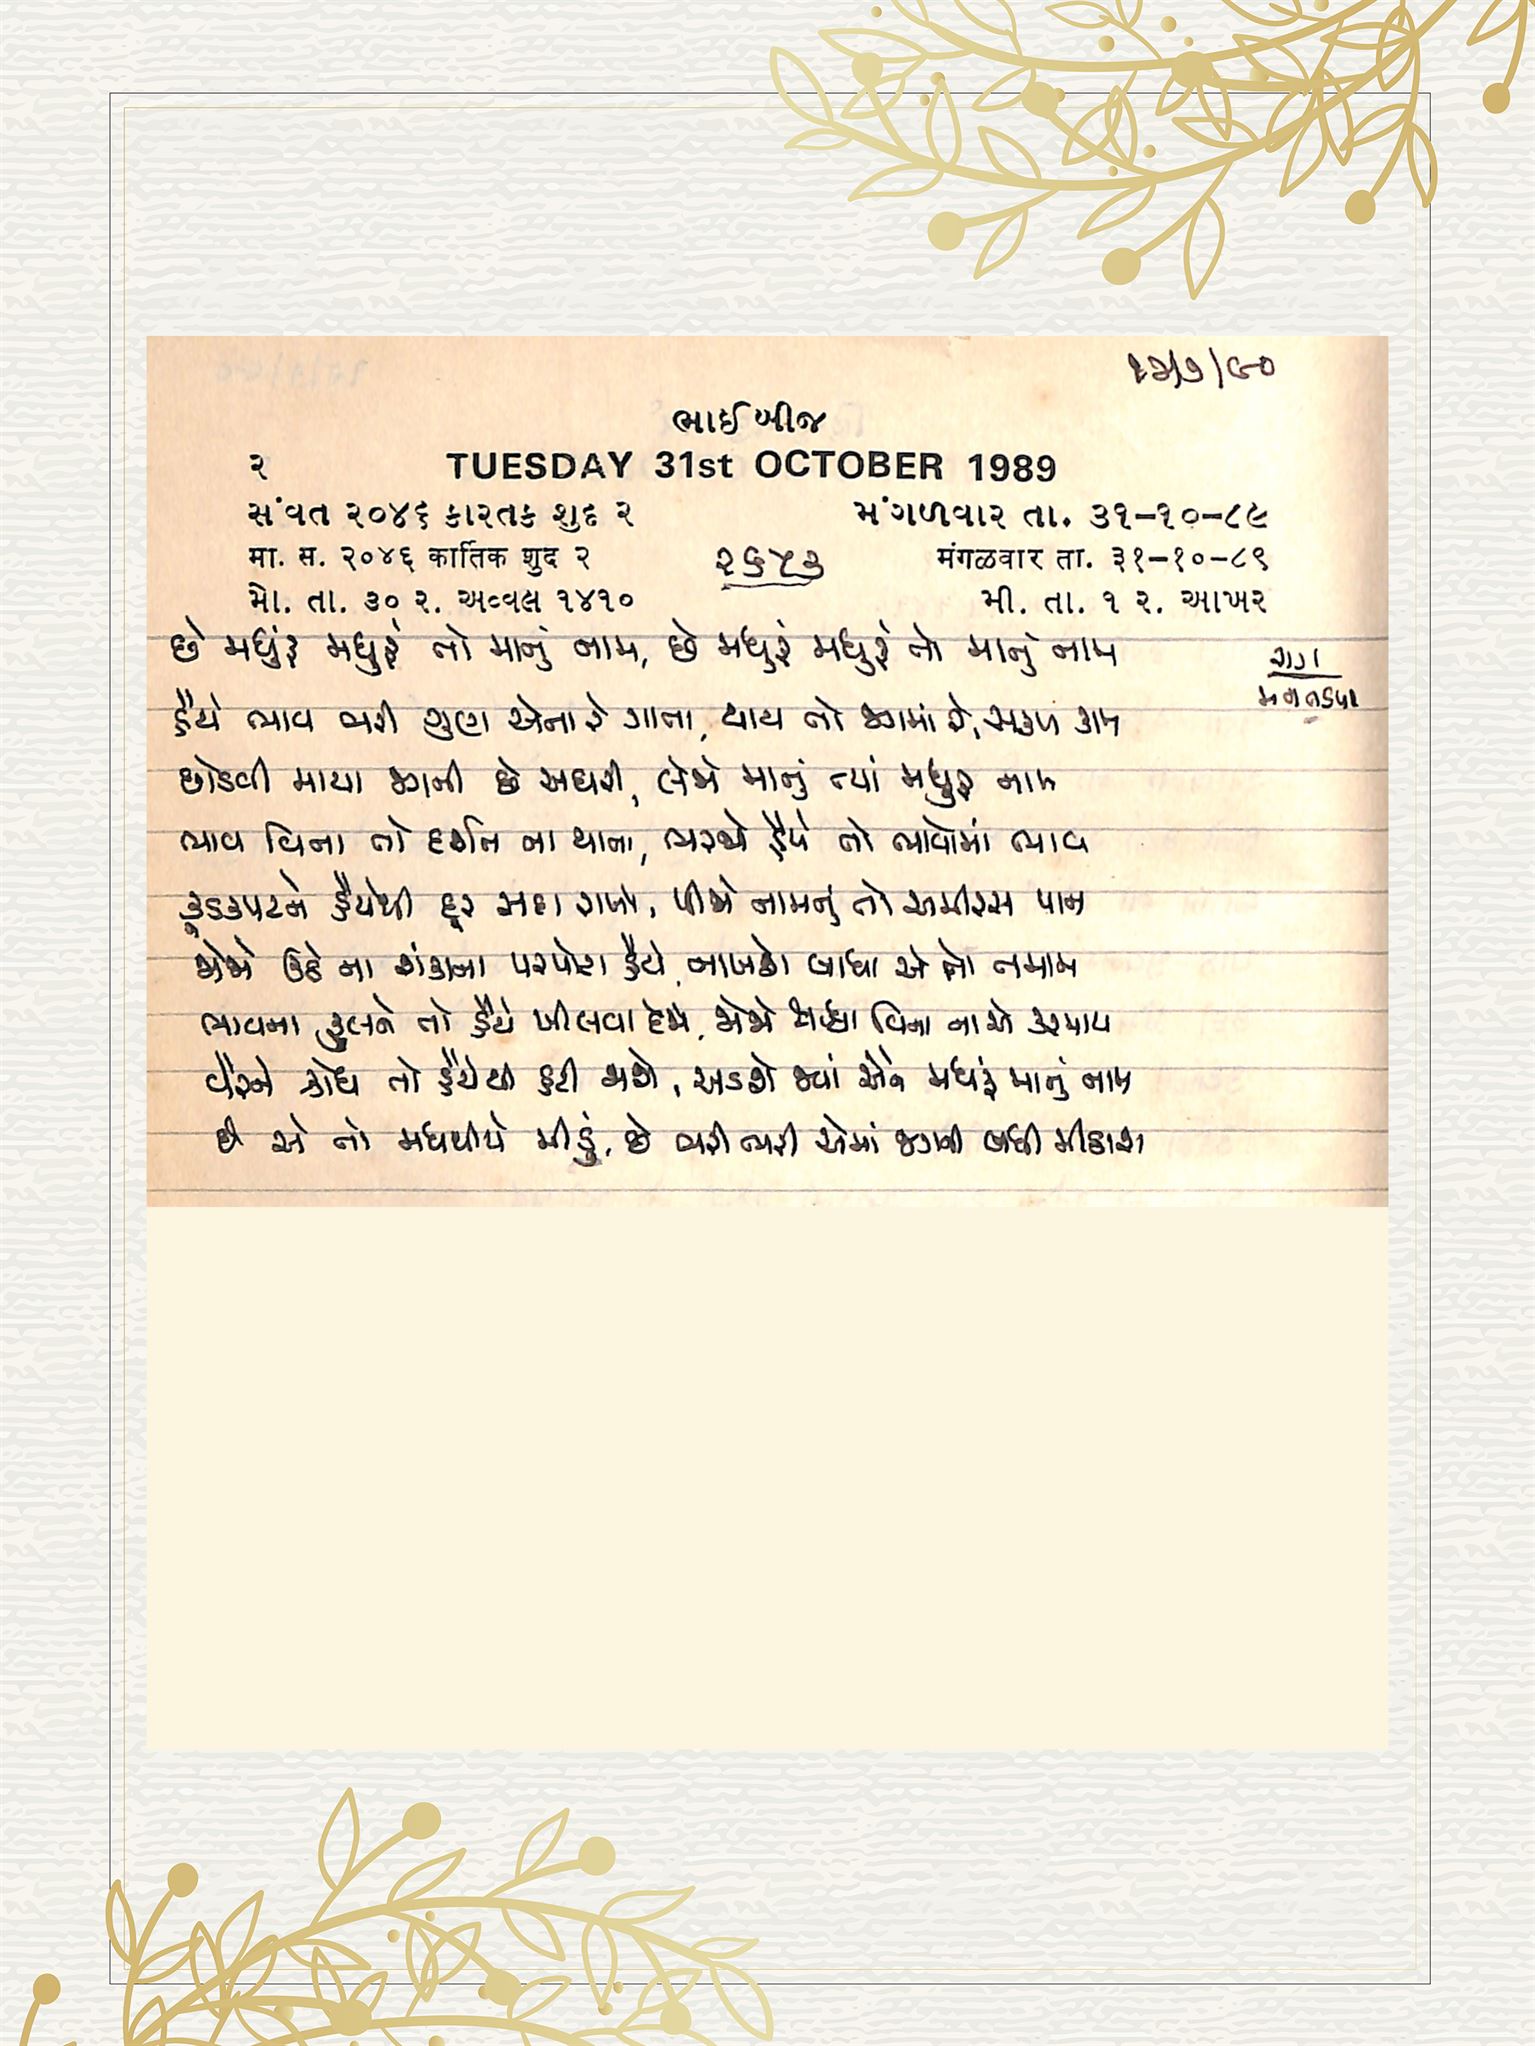 ૧૨/૭/૯૦
ભાઈ બીજ
૨ TUESDAY 31st OCTOBER 1989
સંવત ૨૦૪૬ કારતક શુદ ૨ મંગળવાર તા. ૩૧-૧૦-૮૯
मा. स. २०४६ कार्तिक शुद २ मंगळवार ता. ३१-१०-८९
મો. તા. ૩૦ ર. અવ્વલ ૧૪૧૦ મી. તા. ૧ ર. આખર
છે મધુરું મધુરું તો માનું નામ, છે મધુરું મધુરું તો માનું નામ
હૈયે ભાવ ભરી ગુણ એના રે ગાતા, થાય તો જગમાં રે, સફળ કામ
છોડવી માયા જગની છે અઘરી, લેજે માનું ત્યાં મધુરું નામ
ભાવ વિના તો દર્શન ના થાતા, ભરજે હૈયે તો ભાવોમાં ભાવ
કૂડકપટને હૈયેથી દૂર સદા રાખી, પીજે નામનું તો અમીરસ પાન
જોજે ઉઠે ના શંકાના પરપોટા હૈયે, નાખશે બાધા એ તો તમામ
ભાવના ફુલને તો હૈયે ખીલવા દેજે, જોજે શ્રદ્ધા વિના ના એ કરમાય
વૈરને ક્રોધ તો હૈયેથી હટી જાશે, અડશે જ્યાં એને મધુરું માનું નામ
છે એ તો મધથીયે મીઠું, છે ભરી ભરી એમાં જગની બધી મીઠાશ